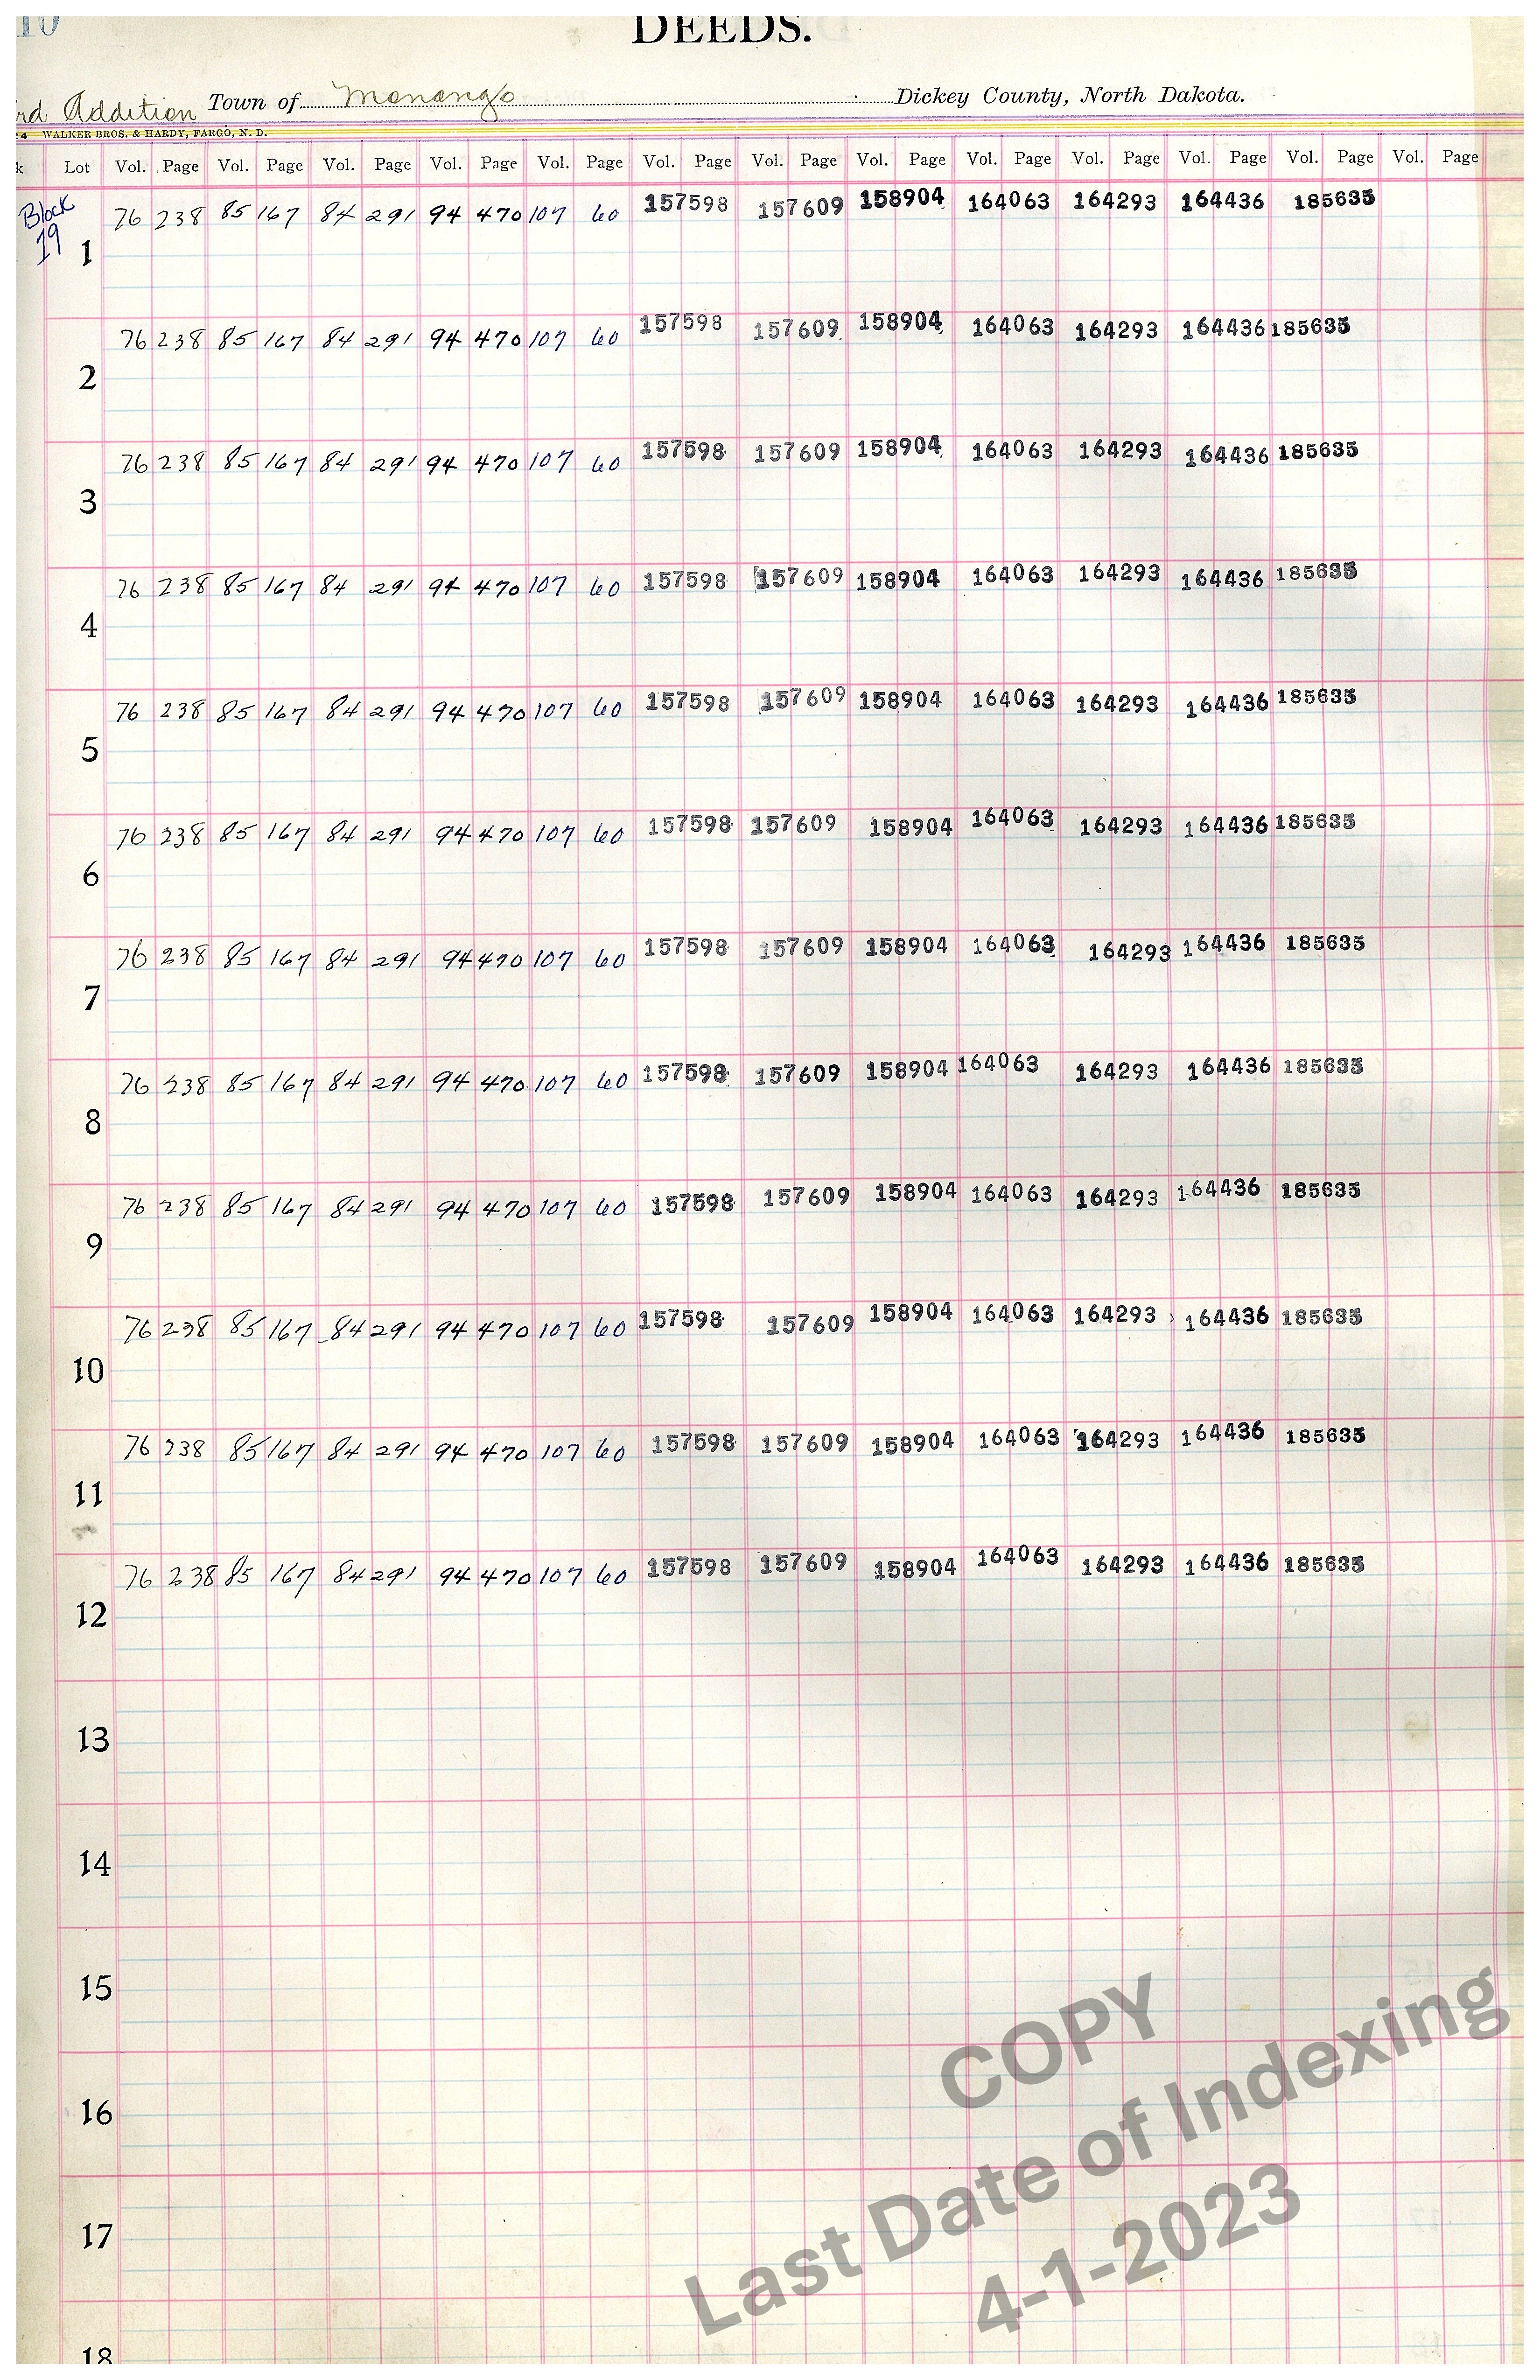 10
DEEDS.
rd Addition Town of Monango Dickey County, North Dakota.
24 WALKER BROS. & HARDY, FARGO, N. D.
k Lot Vol. Page Vol. Page Vol. Page Vol. Page Vol. Page Vol. Page Vol. Page Vol. Page Vol. Page Vol. Page Vol. Page Vol. Page Vol. Page
Block
19
76 238 85 167 84 291 94 470 107 60 157598 157609 158904 164063 164293 164436 185635
1
76 238 85 167 84 291 94 470 107 60 157598 157609 158904 164063 164293 164436 185635
2
76 238 85 167 84 291 94 470 107 60 157598 157609 158904 164063 164293 164436 185635
3
76 238 85 167 84 291 94 470 107 60 157598 157609 158904 164063 164293 164436 185635
4
76 238 85 167 84 291 94 470 107 60 157598 157609 158904 164063 164293 164436 185635
5
76 238 85 167 84 291 94 470 107 60 157598 157609 158904 164063 164293 164436 185635
6
76 238 85 167 84 291 94 470 107 60 157598 157609 158904 164063 164293 164436 185635
7
76 238 85 167 84 291 94 470 107 60 157598 157609 158904 164063 164293 164436 185635
8
76 238 85 167 84 291 94 470 107 60 157598 157609 158904 164063 164293 164436 185635
9
76 238 85 167 84 291 94 470 107 60 157598 157609 158904 164063 164293 164436 185635
10
76 238 85 167 84 291 94 470 107 60 157598 157609 158904 164063 164293 164436 185635
11
76 238 85 167 84 291 94 470 107 60 157598 157609 158904 164063 164293 164436 185635
12
13
14
15
16
17
18
COPY
Last Date of Indexing
4-1-2023